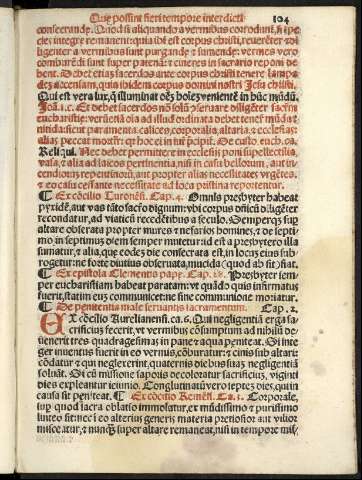 Que possint fieri tempore interdicti 104
conseerande. Quod si aliquando a vermibus corrodunt, si spe
cies integre remanent: quia ibi est corpus christi, reuerēter &
ligenter a vermibus sunt purgande & sumende: vermes vero
comburēdi sunt super patenā: & cineres in sacrario reponi de
bent. Debet etiā sacerdos ante corpus christi tenere lampa
dē accensam, quia ibidem corpus domini nostri Jesu christi,
Qui est vera lux, q̄ illuminat oēs boīes veniente in hūc mūdū.
Joā.i.c. Et debet sacerdos nō solū seruare diligēter sacrm
eucharistie: verū etiā oīa ad illud ordinata debet tenef mūda &
nitida: sicut paramenta, calices, corporalia, altaria, & ecclesias:
alias peccat mortr: qr hoc ei in iūcipit. De custo. euch. ca.
Reliqui. Nec debet permittere in ecclesijs poni suppellectilia,
vasa, & alia ad laicos pertinentia, nisi in casu bellorum, aut in
cendiorum repentinorū, aut propter alias necessitates vrgētes,
& eo casu cessante necessitate ad loca pristina reportentur.
¶ Ex cōcilio Turonēs. Cap. 4. Omnis presbyter habeat
pyxidē, aut vas tāto sacro dignum: vbi corpus dñicū diligēter
recondatur, ad viaticū recedētibus a seculo. Semperq̄ sup
altare obserata propter mures & nefarios homines, & de septi
mo in septimus diem semper mutetur: id est a presbytero illa
sumatur, & alia, que eodē die consecrata est, in locū eius subs
rogetur: ne forte diutius obseruata, mucida (quod absit) fiat.
¶ Ex epistola Clementis pape. Cap. 18. Presbyter sem
per eucharistiam habeat paratam: vt quādo quis infirmatus
fuerit, statim eum communicet: ne sine communione moriatur.
¶ De penitentia male seruantis sacramentum. Cap. 2.
EX cōcilio Aurelianeñ. ca. 6. Qui negligentiā erga sa
crificius fecerit, vt vermibus cōsumptum ad nihilū de
uenerit tres quadragesimas in pane & aqua peniteat. Si inte
ger inuentus fuerit in eo vermis, cōburatur: & cinis sub altari
cōdatur & qui neglexerit, quaternis diebus suaz negligentiā
soluat. Si cū missione saporis decoloratur sacrificius, viginti
dies expleantur ieiunio. Conglutinatū vero septez dies, qui in
causa sit peniteat. ¶ Ex cōcilio Remēs. Ca. 3. Corporale,
sup quod sacra oblatio immolatur, ex mūdissimo & purissimo
linteo sit: nec in eo alterius generis materia preciosior aut vilior
misceatur, & nunq̄ super altare remaneat, nisi in tempore mis